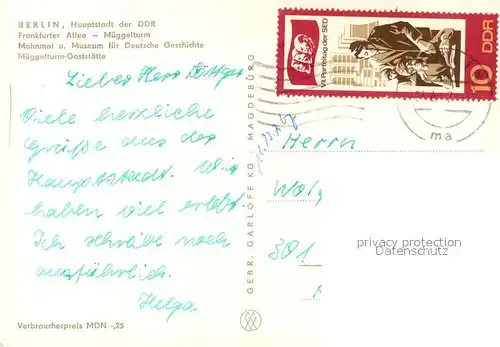 BERLIN, Hauptstadt der DDR
Frankfurter Allee – Müggelturm
Mahnmal u. Museum für Deutsche Geschichte
Müggelturm-Gaststätte
Lieber Herr Böttger
Viele herzliche
Grüße aus der
Hauptstadt. Wir
haben viel erlebt.
Ich schreibe noch
ausführlich.
Helga
Verbraucherpreis MDN -,25
GEBR. GARLOFF KG. MAGDEBURG
VII. Parteitag der SED
10 DDR
ma
Herrn
301
privacy protection
Datenschutz